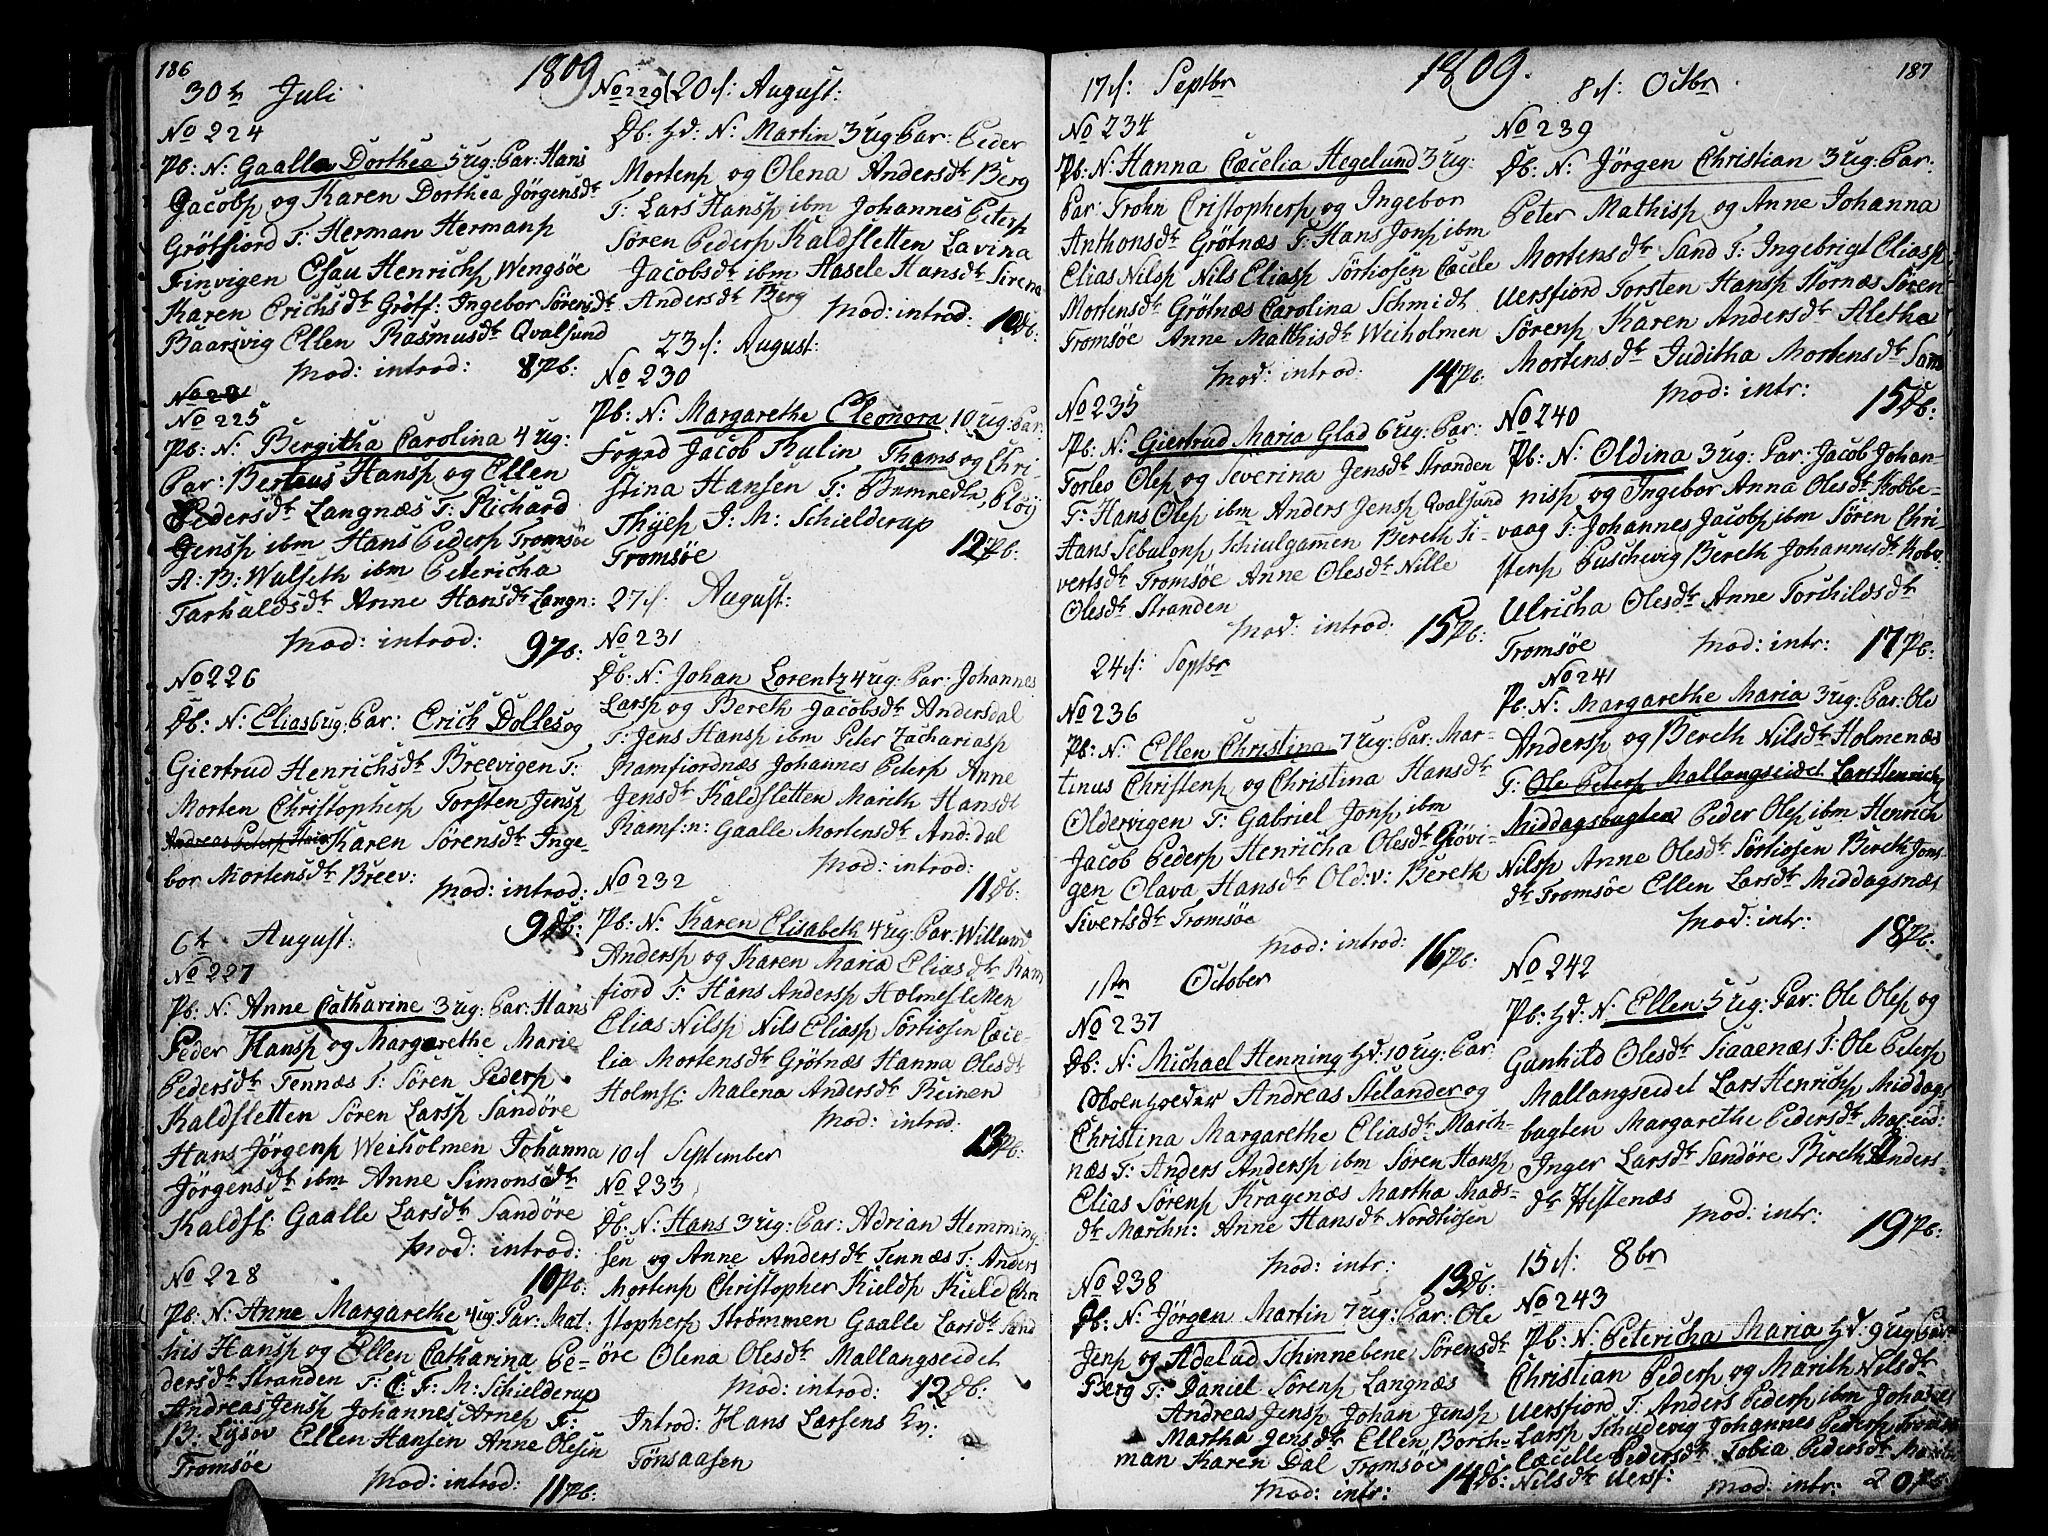 186
1809
30th Juli
No 224
Pb: N: Gaalla Dorthea 5 ug: Par: Hans
Jacobs. og Karen Dorthea Jörgensdtr
Grötfiord T: Herman Hermans.
Finvigen Esau Henrichs. Wengsöe
Karen Erichsdtr Grötf: Ingebor Sörensdtr
Baarsvig Ellen Rasmusdtr Qvalsund
Mod: introd: 8 Pb:
No 225
Pb: N: Bergitha Carolina 4 ug:
Par: Berteus Hans. og Ellen
Pedersdtr Langnæs T: Richard
Jens. ibm Hans Peders. Tromsöe
A: B: Wulfeth ibm Petericha
Tarhaldsdtr Anne Hansdtr Langn:
Mod: introd: 9 Pb:
No 226
Db: N: Elias 6 ug: Par: Erich Dolles og
Giertrud Henrichsdtr Breevigen T:
Morten Christophers. Torsten Jens.
Karen Sörensdtr Inge-
bor Mortensdtr Breev: Mod: introd:
9 Db:
6th August:
No 227
Pb: N: Anne Catharine 3 ug: Par: Hans
Peder Hans. og Margarethe Marie
Pedersdtr Tennæs T: Sören Peders.
Kaldsletten Sören Lars. Sandöre
Hans Jörgens. Weiholmen Johanna
Jörgensdtr ibm Anne Simonsdtr
Kaldsl: Gaalle Larsdtr Sandöre
Mod: introd:
10 Pb:
No 228
Pb: N: Anne Margarethe 4 ug: Par: Mat-
his Hans. og Ellen Catharina Pe-
dersdtr Stranden T: C: F: M: Schielderup
Andreas Jens. Johannes Arnes. F:
B: Lysöv Ellen Hansen Anne Olesen
Tromsöe
Mod: introd: 11 Pb:
No 229 20 s: August:
Db: hd: N: Martin 3 ug Par: Peder
Mortens. og Olena Andersdtr Berg
T: Lars Hans. ibm Johannes Peters.
Sören Peders. Kaldsletten Lavina
Jacobsdtr ibm Hasele Hansdtr Sirena
Andersdtr Berg Mod: introd: 10 Db:
23 s: August:
No 230
Pb: N: Margarethe Eleonora 10 ug: Par:
Foged Jacob Kulin Thams og Chri-
stina Hansen T: Ploÿ
Thÿes. J: M: Schielderup
Tromsöe 12 Pb:
27 s: August:
No 231
Db: N: Johan Lorentz 4 ug: Par: Johannes
Lars. og Bereth Jacobsdtr Andersdal
T: Jens Hans. ibm Peter Zacharias.
Ramfiordnæs Johannes Peters. Anne
Jensdtr Kaldsletten Marith Hansdtr
Ramf: n: Gaalle Mortensdtr And: dal
Mod: introd:
11 Db:
No 232
Pb: N: Karen Elisabeth 4 ug: Par: Willum
Anders. og Karen Maria Eliasdtr Ram
fiord T: Hans Anders. Holmesletten
Elias Nils. Nils Elias. Sörtiosen Cæce-
lia Mortensdtr Grötnæs Hanna Olesdtr
Holmsl: Malena Andersdtr Reinen
Mod: introd:
13 Pb:
10 s September
No 233
Db: N: Hans 3 ug: Par: Adrian Hemming-
sen og Anne Andersdtr Tennæs T: Anders
Mortens. Christopher Kields. Kield Chri
stophers. Strömmen Gaalle Larsdtr Sand
öre Olena Olesdtr Mallangseidet
Mod: introd: 12 Db:
Introd: Hans Larsens Kv:
Tönsaasen
187
1809.
17 s: Septbr
No 234
Pb: N: Hanna Cæcelia Hegelund 3 ug:
Par: Trohn Cristophers. og Ingebor
Anthonsdtr Grötnæs T: Hans Jons. ibm
Elias Nils. Nils Elias. Sörtiosen Cæcile
Mortensdtr Grötnæs Carolina Schmidt
Tromsöe Anne Matthisdtr Weiholmen
Mod: introd: 14 Pb:
No 235
Pb: N: Giertrud Maria Glad 6 ug: Par:
Torles Oles. og Severina Jensdtr Stranden
T: Hans Oles. ibm Anders Jens. Qvalsund
Hans Sebulons. Schiulgammen Bereth Si-
vertsdtr Tromsöe Anne Olesdtr Nille
Olesdtr Stranden
Mod: introd: 15 Pb:
24 s: Septbr
No 236
Pb: N: Ellen Christina 7 ug: Par: Mar-
tinus Christens. og Christina Hansdtr
Oldervigen T: Gabriel Jons. ibm
Jacob Peders. Henricha Olesdtr Giövi-
gen Olava Hansdtr Old: v: Bereth
Sivertsdtr Tromsöe
Mod: introd: 16 Pb:
1ste October
No 237
Db: N: Michael Henning hd: 10 ug: Par:
Andreas Stelander og
Christina Margarethe Eliasdtr March-
næs T: Anders Anders. ibm Sören Hans.
Elias Sörens. Kragenæs Martha Mads-
dtr Marchn: Anne Hansdtr Nordtiosen
Mod: intr: 13 Db:
No 238
Db: N: Jörgen Martin 7 ug: Par: Ole
Jens. og Adelad Schinnebene Sörensdtr
Berg T: Daniel Sörens. Langnæs
Andreas Jens. Johan Jens.
Martha Jensdtr Ellen Borch-
man Karen Dal Tromsöe
Mod: intr: 14 Db:
8 s: Octbr
No 239
Db: N: Jörgen Christian 3 ug: Par:
Peter Mathis. og Anne Johanna
Mortensdtr Sand T: Ingebrigt Elias.
Uersfiord Torsten Hans. Stornæs Sören
Sörens. Karen Andersdtr Aletha
Mortensdtr Juditha Mortensdtr Sand
Mod: intr: 15 Db:
No 240
Pb: N: Oldina 3 ug: Par: Jacob Johan-
nis. og Ingebor Anna Olesdtr Kobbe-
vaag T: Johannes Jacobs. ibm Sören Chri-
stens. Buschevig Bereth Johannesdtr Kobv:
Ulricha Olesdtr Anne Torchildsdtr
Tromsöe Mod: intr: 17 Pb:
No 241
Pb: N: Margarethe Maria 3 ug: Par: Ole
Anders. og Bereth Nilsdtr Holmenæs
T: Ole Peters. Mallangseidet Lars Henrichs.
Middagsbugten Peder Oles. ibm Henrich
Nils. Anne Olesdtr Sörtiosen Bereth Jons-
dtr Tromsöe Ellen Larsdtr Middagsnæs
Mod: intr: 18 Pb:
No 242
Pb: hd: N: Ellen 5 ug: Par: Ole Oles. og
Gunhild Olesdtr Siaaenæs T: Ole Peters.
Mallangseidet Lars Henrichs. Middags
bugten Margarethe Pedersdtr Mal: eid:
Inger Larsdtr Sandöre Bereth Anders-
dtr Hestenæs
Mod: intr: 19 Pb:
15 s: 8br
No 243
Pb: N: Petericha Maria hd: 9 ug Par:
Christian Peders. og Marith Nilsdtr
Uersfiord T: Anders Peders. ibm Johannes
Lars. Schudevig Johannes Peders. Tromsöe
Cæcille Pedersdtr Tobia Pedersdtr
Nilsdtr Uersf: Mod: intr: 20 Pb: